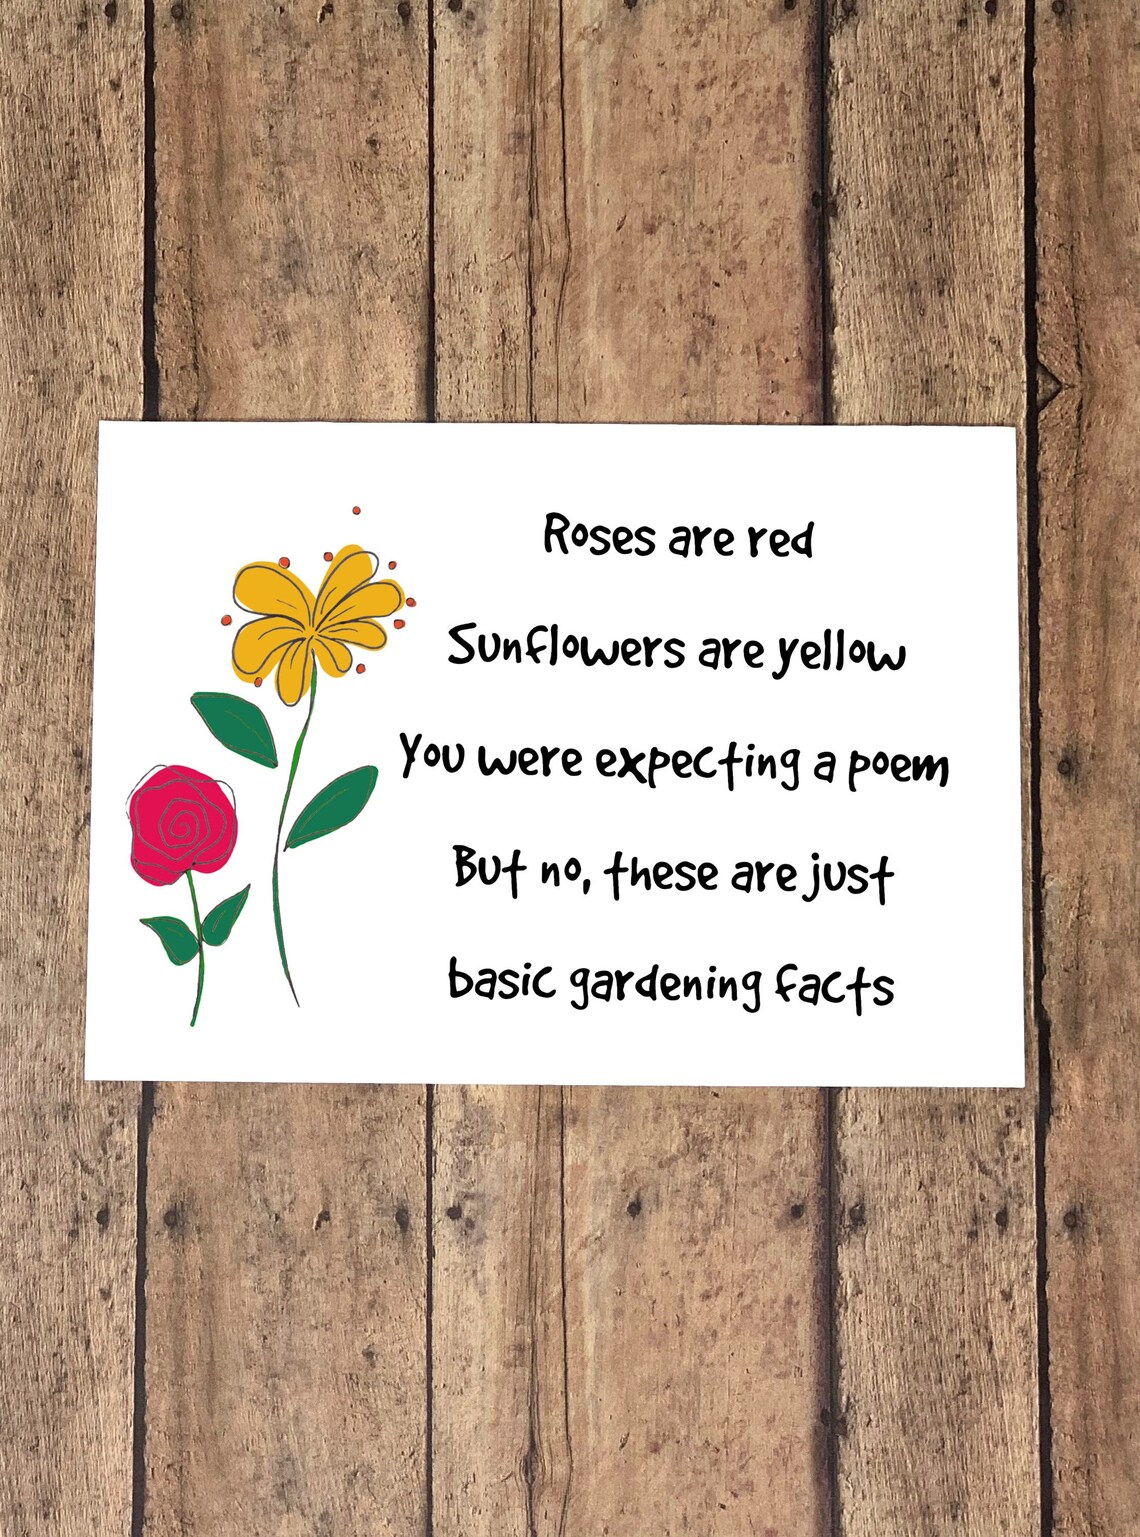 Roses are red
Sunflowers are yellow
You were expecting a poem
But no, these are just
basic gardening facts